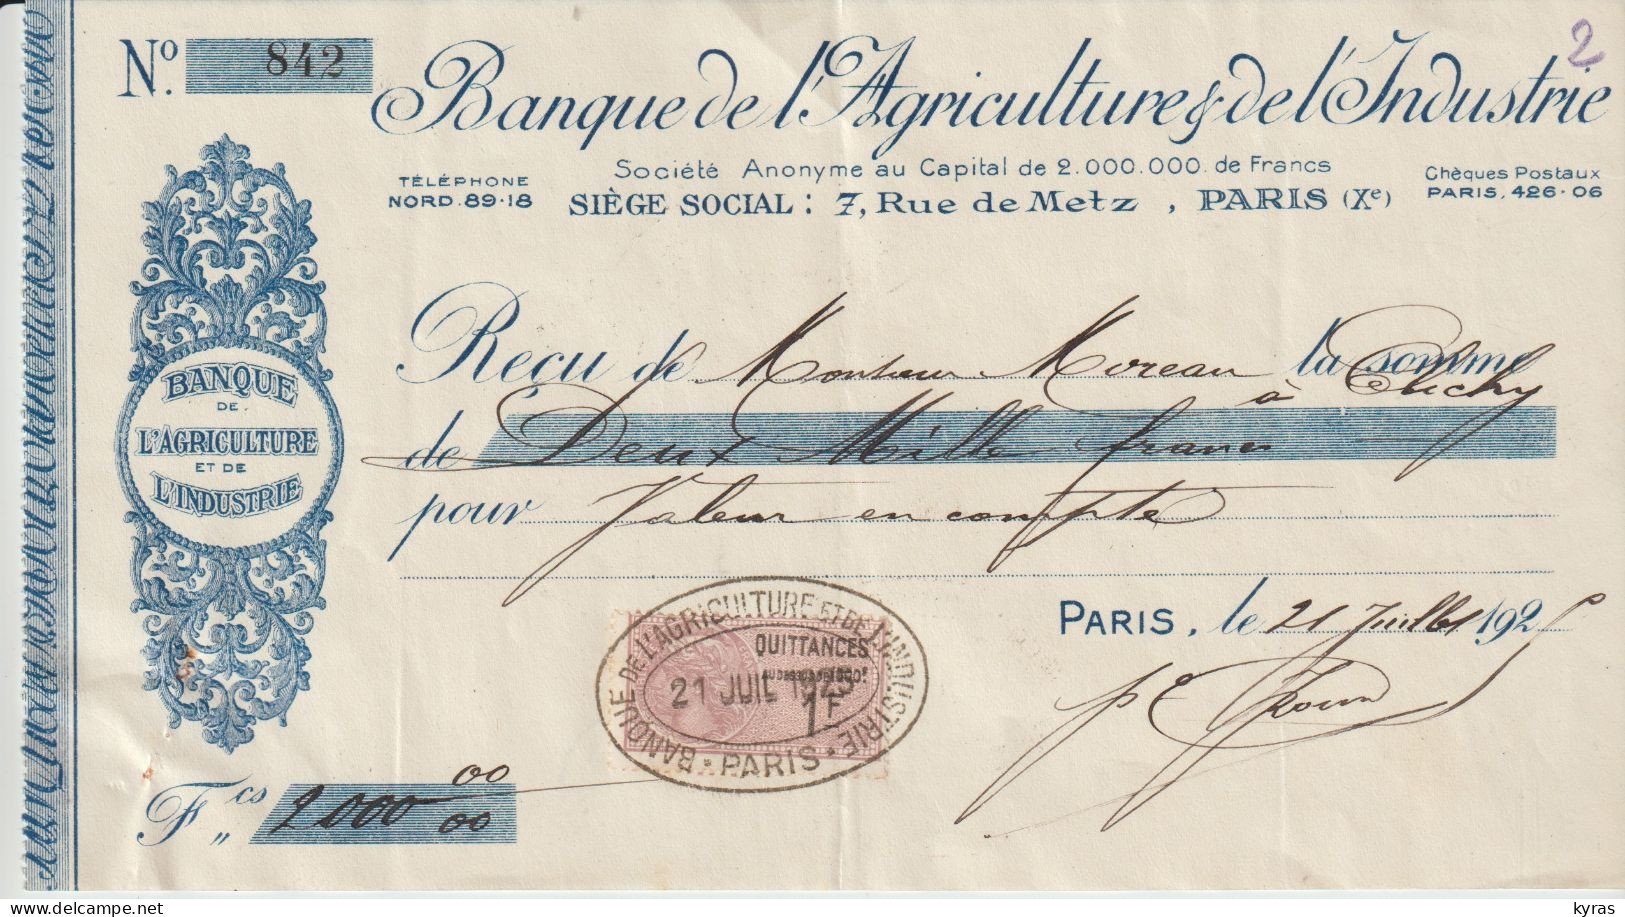 2
Nº. 842
Banque de l'Agriculture & de l'Industrie
Société Anonyme au Capital de 2.000.000. de Francs
TÉLÉPHONE
NORD.89-18
SIÈGE SOCIAL : 7, Rue de Metz , PARIS (Xe)
Chèques Postaux
PARIS. 426-06
BANQUE
DE
L'AGRICULTURE
ET DE
L'INDUSTRIE
Reçu de Monsieur Moreau la somme
à Clichy
de Deux Mille francs
pour Valeur en compte
PARIS, le 21 Juillet 1925
BANQUE DE L'AGRICULTURE ET DE L'INDUSTRIE
• PARIS •
QUITTANCES
21 JUIL 1925
1F
Fcs 2000 00
00
delcampe.net
kyras